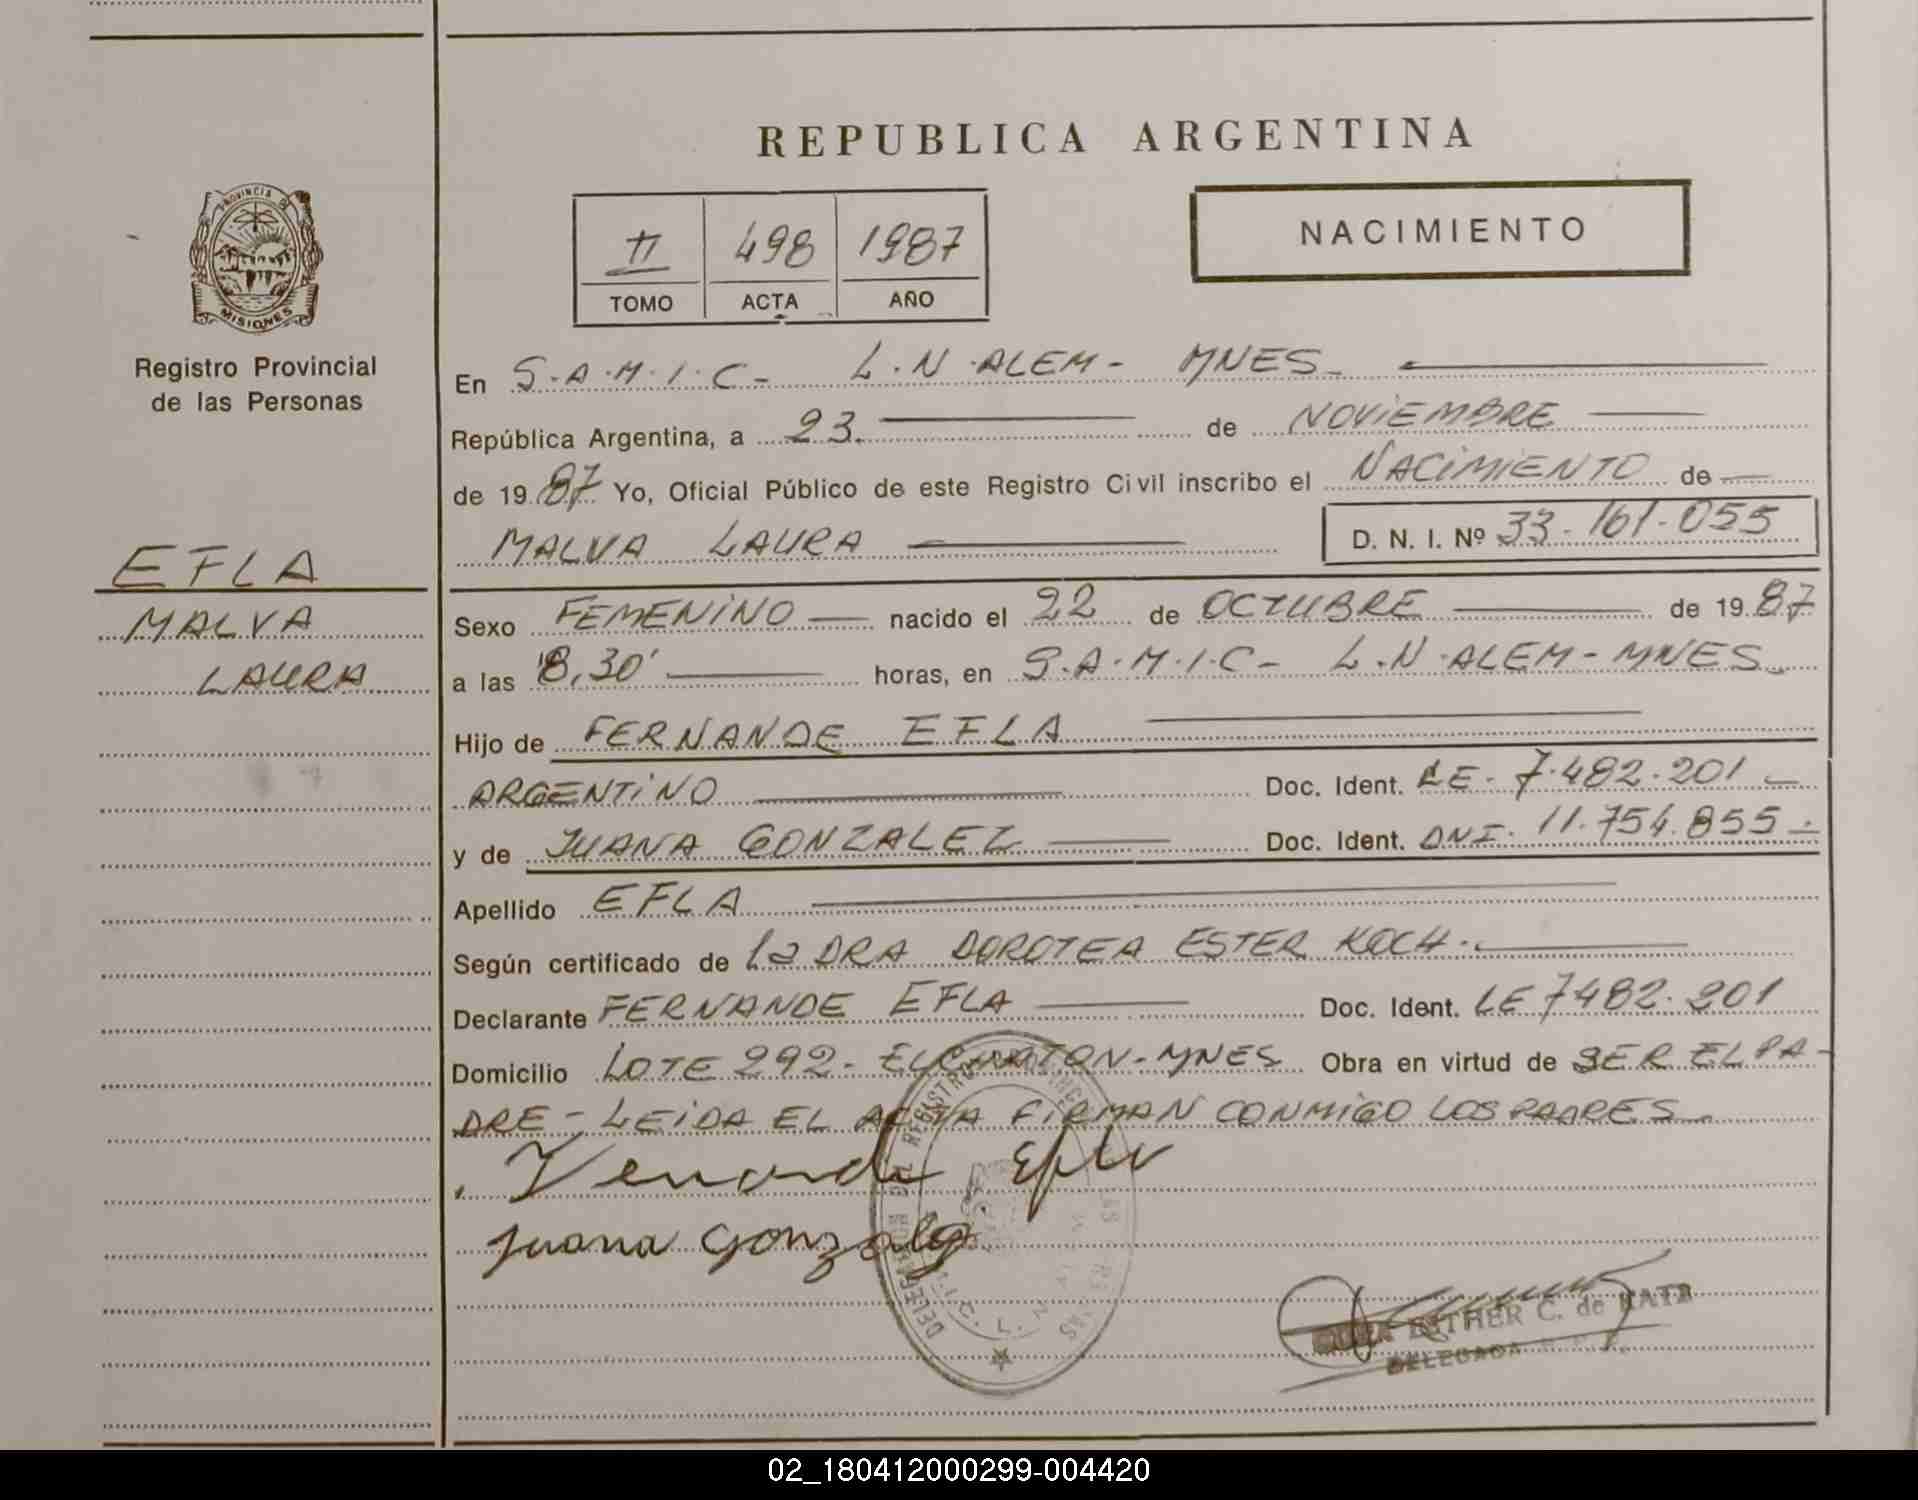 REPUBLICA ARGENTINA
PROVINCIA DE
MISIONES
Registro Provincial
de las Personas
II 498 1987
TOMO ACTA AÑO
NACIMIENTO
En S.A.M.I.C- L.N.ALEM- MNES-
República Argentina, a 23. de NOVIEMBRE
de 1987 Yo, Oficial Público de este Registro Civil inscribo el NACIMIENTO de
MALVA LAURA D. N. I. Nº 33.161.055
EFLA
MALVA
LAURA
Sexo FEMENINO nacido el 22 de OCTUBRE de 1987
a las 8,30' horas, en S.A.M.I.C- L.N.ALEM-MNES-
Hijo de FERNANDE EFLA
ARGENTINO Doc. Ident. LE. 7.482.201
y de JUANA GONZALEZ Doc. Ident. DNI. 11.754.855.
Apellido EFLA
Según certificado de la DRA DOROTEA ESTER KOCH.
Declarante FERNANDE EFLA Doc. Ident. LE 7482.201
Domicilio LOTE 292- EL CHATON-MNES Obra en virtud de SER EL PA-
DRE- LEIDA EL ACTA FIRMAN CONMIGO LOS PADRES-
Efla
Juana Gonzalez
DELEGACION DEL REGISTRO
ESTHER C. de KATZ
DELEGADA
02_180412000299-004420